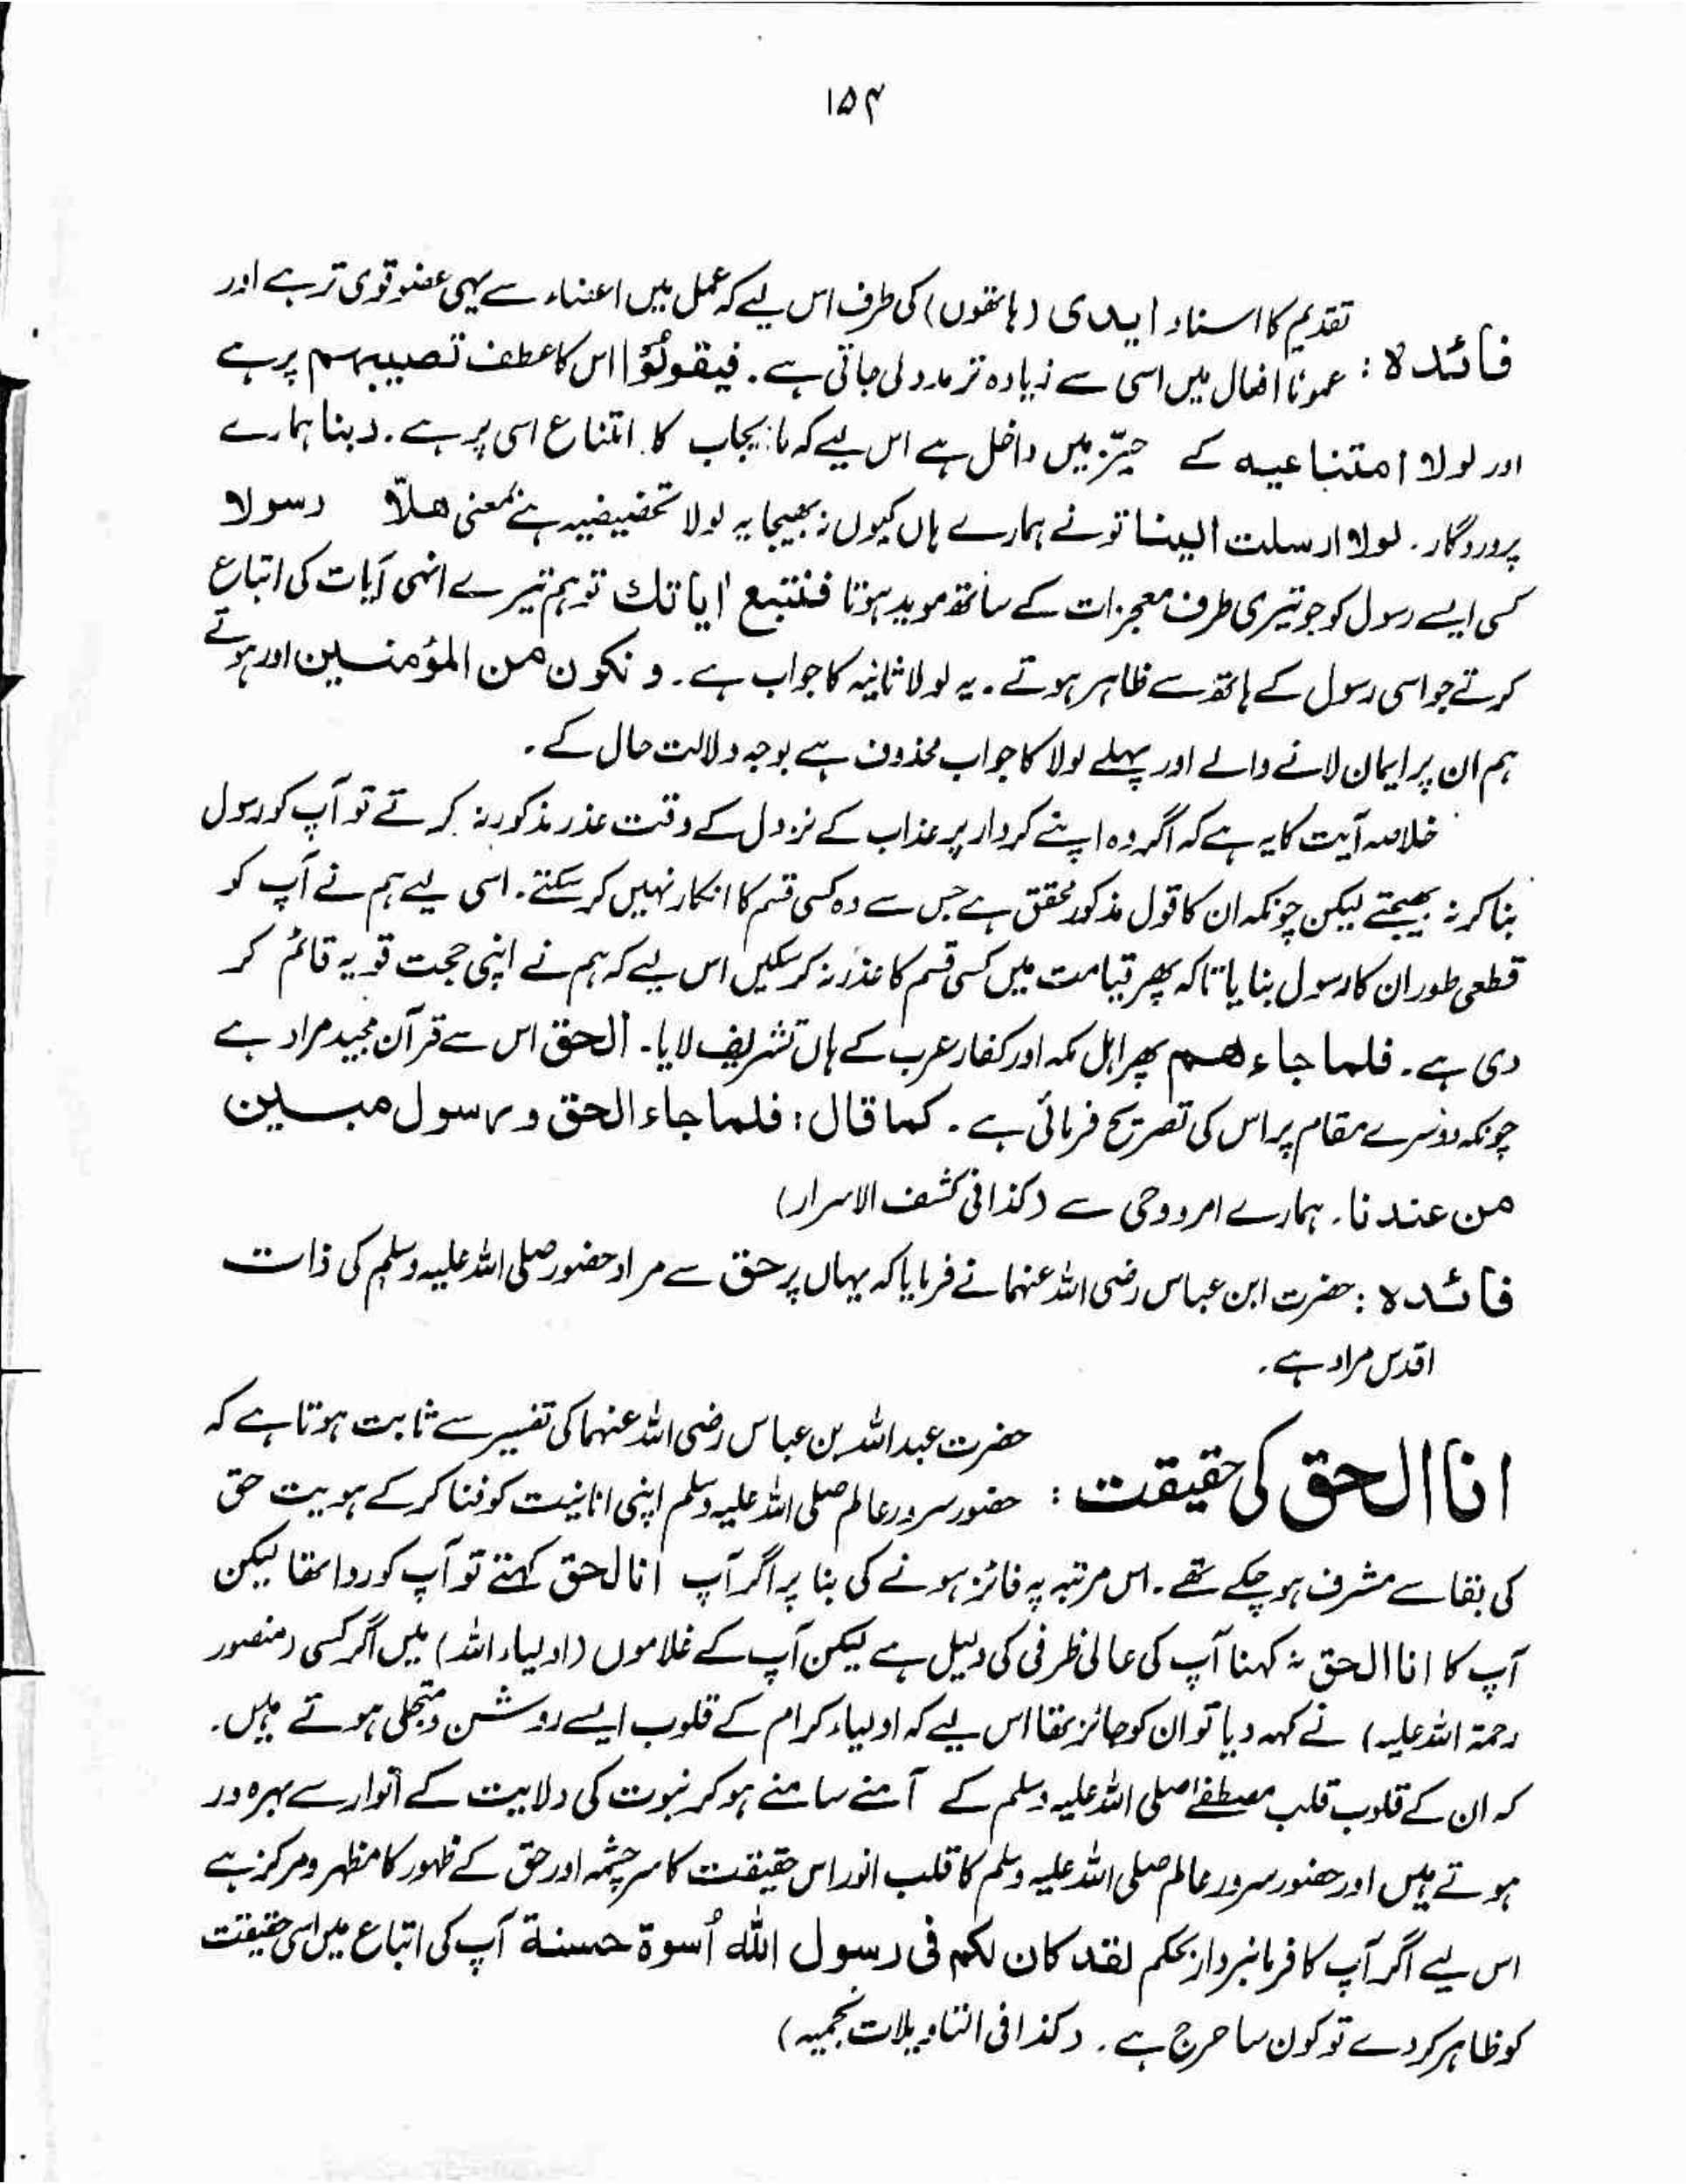 ۱۵۴
تقدیم کا اسناد ایدی (ہاتھوں) کی طرف اس لیے کہ عمل میں اعضاء سے یہی عضو قوی تر ہے اور
فائدہ : عموماً افعال میں اسی سے زیادہ تر مدد لی جاتی ہے۔ فیقولُوْا اس کا عطف تصیبہم پر ہے
اور لولا امتناعیہ کے حیّز میں داخل ہے اس لیے کہ ما یجاب کا امتناع اسی پر ہے۔ ربنا ہمارے
پروردگار۔ لولا ارسلت الینا تو نے ہمارے ہاں کیوں نہ بھیجا یہ لولا تحضیضیہ ہے بمعنی ھلاّ رسولا
کسی ایسے رسول کو جو تیری طرف معجزات کے ساتھ موید ہوتا فنتبع اٰیاتك تو ہم تیرے انہی آیات کی اتباع
کرتے جو اسی رسول کے ہاتھ سے ظاہر ہوتے۔ یہ لولا ثانیہ کا جواب ہے۔ و نکون من المؤمنین اور ہوتے
ہم ان پر ایمان لانے والے اور پہلے لولا کا جواب محذوف ہے بوجہ دلالت حال کے۔
خلاصہ آیت کا یہ ہے کہ اگر وہ اپنے کردار پر عذاب کے نزول کے وقت عذر مذکور نہ کرتے تو آپ کو رسول
بنا کر نہ بھیجتے لیکن چونکہ ان کا قول مذکور محقق ہے جس سے وہ کسی قسم کا انکار نہیں کر سکتے۔ اسی لیے ہم نے آپ کو
قطعی طور ان کا رسول بنایا تاکہ پھر قیامت میں کسی قسم کا عذر نہ کر سکیں اس لیے کہ ہم نے اپنی حجت قویہ قائم کر
دی ہے۔ فلما جاءھم پھر اہل مکہ اور کفار عرب کے ہاں تشریف لایا۔ الحق اس سے قرآن مجید مراد ہے
چونکہ دوسرے مقام پر اس کی تصریح فرمائی ہے۔ کما قال : فلما جاء الحق و رسول مبین
من عندنا۔ ہمارے امر و وحی سے (کذا فی کشف الاسرار)
فائدہ : حضرت ابن عباس رضی اللہ عنہما نے فرمایا کہ یہاں پر حق سے مراد حضور صلی اللہ علیہ وسلم کی ذات
اقدس مراد ہے۔
حضرت عبداللہ بن عباس رضی اللہ عنہما کی تفسیر سے ثابت ہوتا ہے کہ
انا الحق کی حقیقت : حضور سرور عالم صلی اللہ علیہ وسلم اپنی انانیت کو فنا کر کے ہویت حق
کی بقا سے مشرف ہو چکے تھے۔ اس مرتبہ پہ فائز ہونے کی بنا پر اگر آپ انا لحق کہتے تو آپ کو روا تھا لیکن
آپ کا انا الحق نہ کہنا آپ کی عالی ظرفی کی دلیل ہے لیکن آپ کے غلاموں (اولیاء اللہ) میں اگر کسی (منصور
رحمۃ اللہ علیہ) نے کہہ دیا تو ان کو جائز تھا اس لیے کہ اولیاء کرام کے قلوب ایسے روشن و متجلی ہوتے ہیں۔
کہ ان کے قلوب قلب مصطفےٰ صلی اللہ علیہ وسلم کے آمنے سامنے ہو کر نبوت کی ولایت کے انوار سے بہرہ ور
ہوتے ہیں اور حضور سرور عالم صلی اللہ علیہ وسلم کا قلب انور اس حقیقت کا سرچشمہ اور حق کے ظہور کا مظہر و مرکز ہے
اس لیے اگر آپ کا فرمانبردار بحکم لقد کان لکم فی رسول اللہ اُسوۃ حسنۃ آپ کی اتباع میں اسی حقیقت
کو ظاہر کر دے تو کون سا حرج ہے۔ (کذا فی التاویلات نجمیہ)